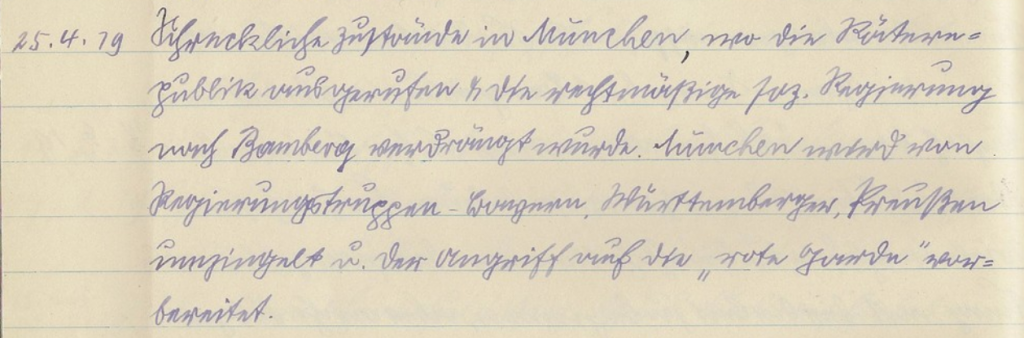 25.4.19 Schreckliche Zustände in München, wo die Rätere=
publik ausgerufen & die rechtmäßige soz. Regierung
nach Bamberg verdrängt wurde. München wird von
Regierungstruppen - Bayern, Württemberger, Preußen
umzingelt u. der Angriff auf die „rote Garde" vor=
bereitet.